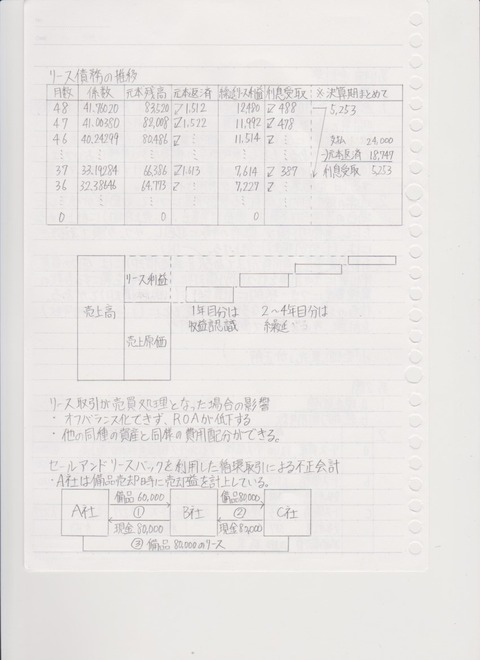 リース債務の推移
月数 係数 元本残高 元本返済 繰延リース利益 利息受取 ※決算期まとめて
48 41.76020 83,520 1,512 12,480 488 5,253
47 41.00380 82,008 1,522 11,992 478
46 40.24299 80,486 11,514 支払 24,000
元本返済 18,747
37 33.19284 66,386 1,613 7,614 387 利息受取 5,253
36 32.38646 64,773 7,227
0 0
売上高 リース利益
売上原価
1年目分は 2～4年目分は
収益認識 繰延
リース取引が売買処理となった場合の影響
・オフバランス化できず、ROAが低下する
・他の同種の資産と同様の費用配分ができる。
セールアンドリースバックを利用した循環取引による不正会計
・A社は備品売却時に売却益を計上している。
備品 60,000 備品80,000
A社 ① B社 ② C社
現金 80,000 現金
③ 備品 80,000のリース